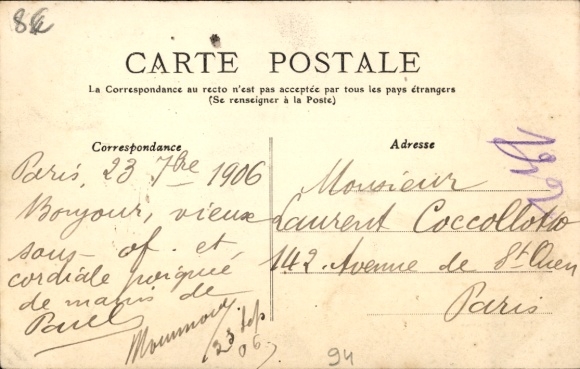 84
CARTE POSTALE
La Correspondance au recto n'est pas acceptée par tous les pays étrangers
(Se renseigner à la Poste)
Correspondance
Paris, 23 7bre 1906
Bonjour, vieux
sous-of. et
cordiale poignée
de mains de
Paul
23 sep
06
Adresse
Monsieur
Laurent Coccollotto
142 Avenue de St Ouen
Paris
94